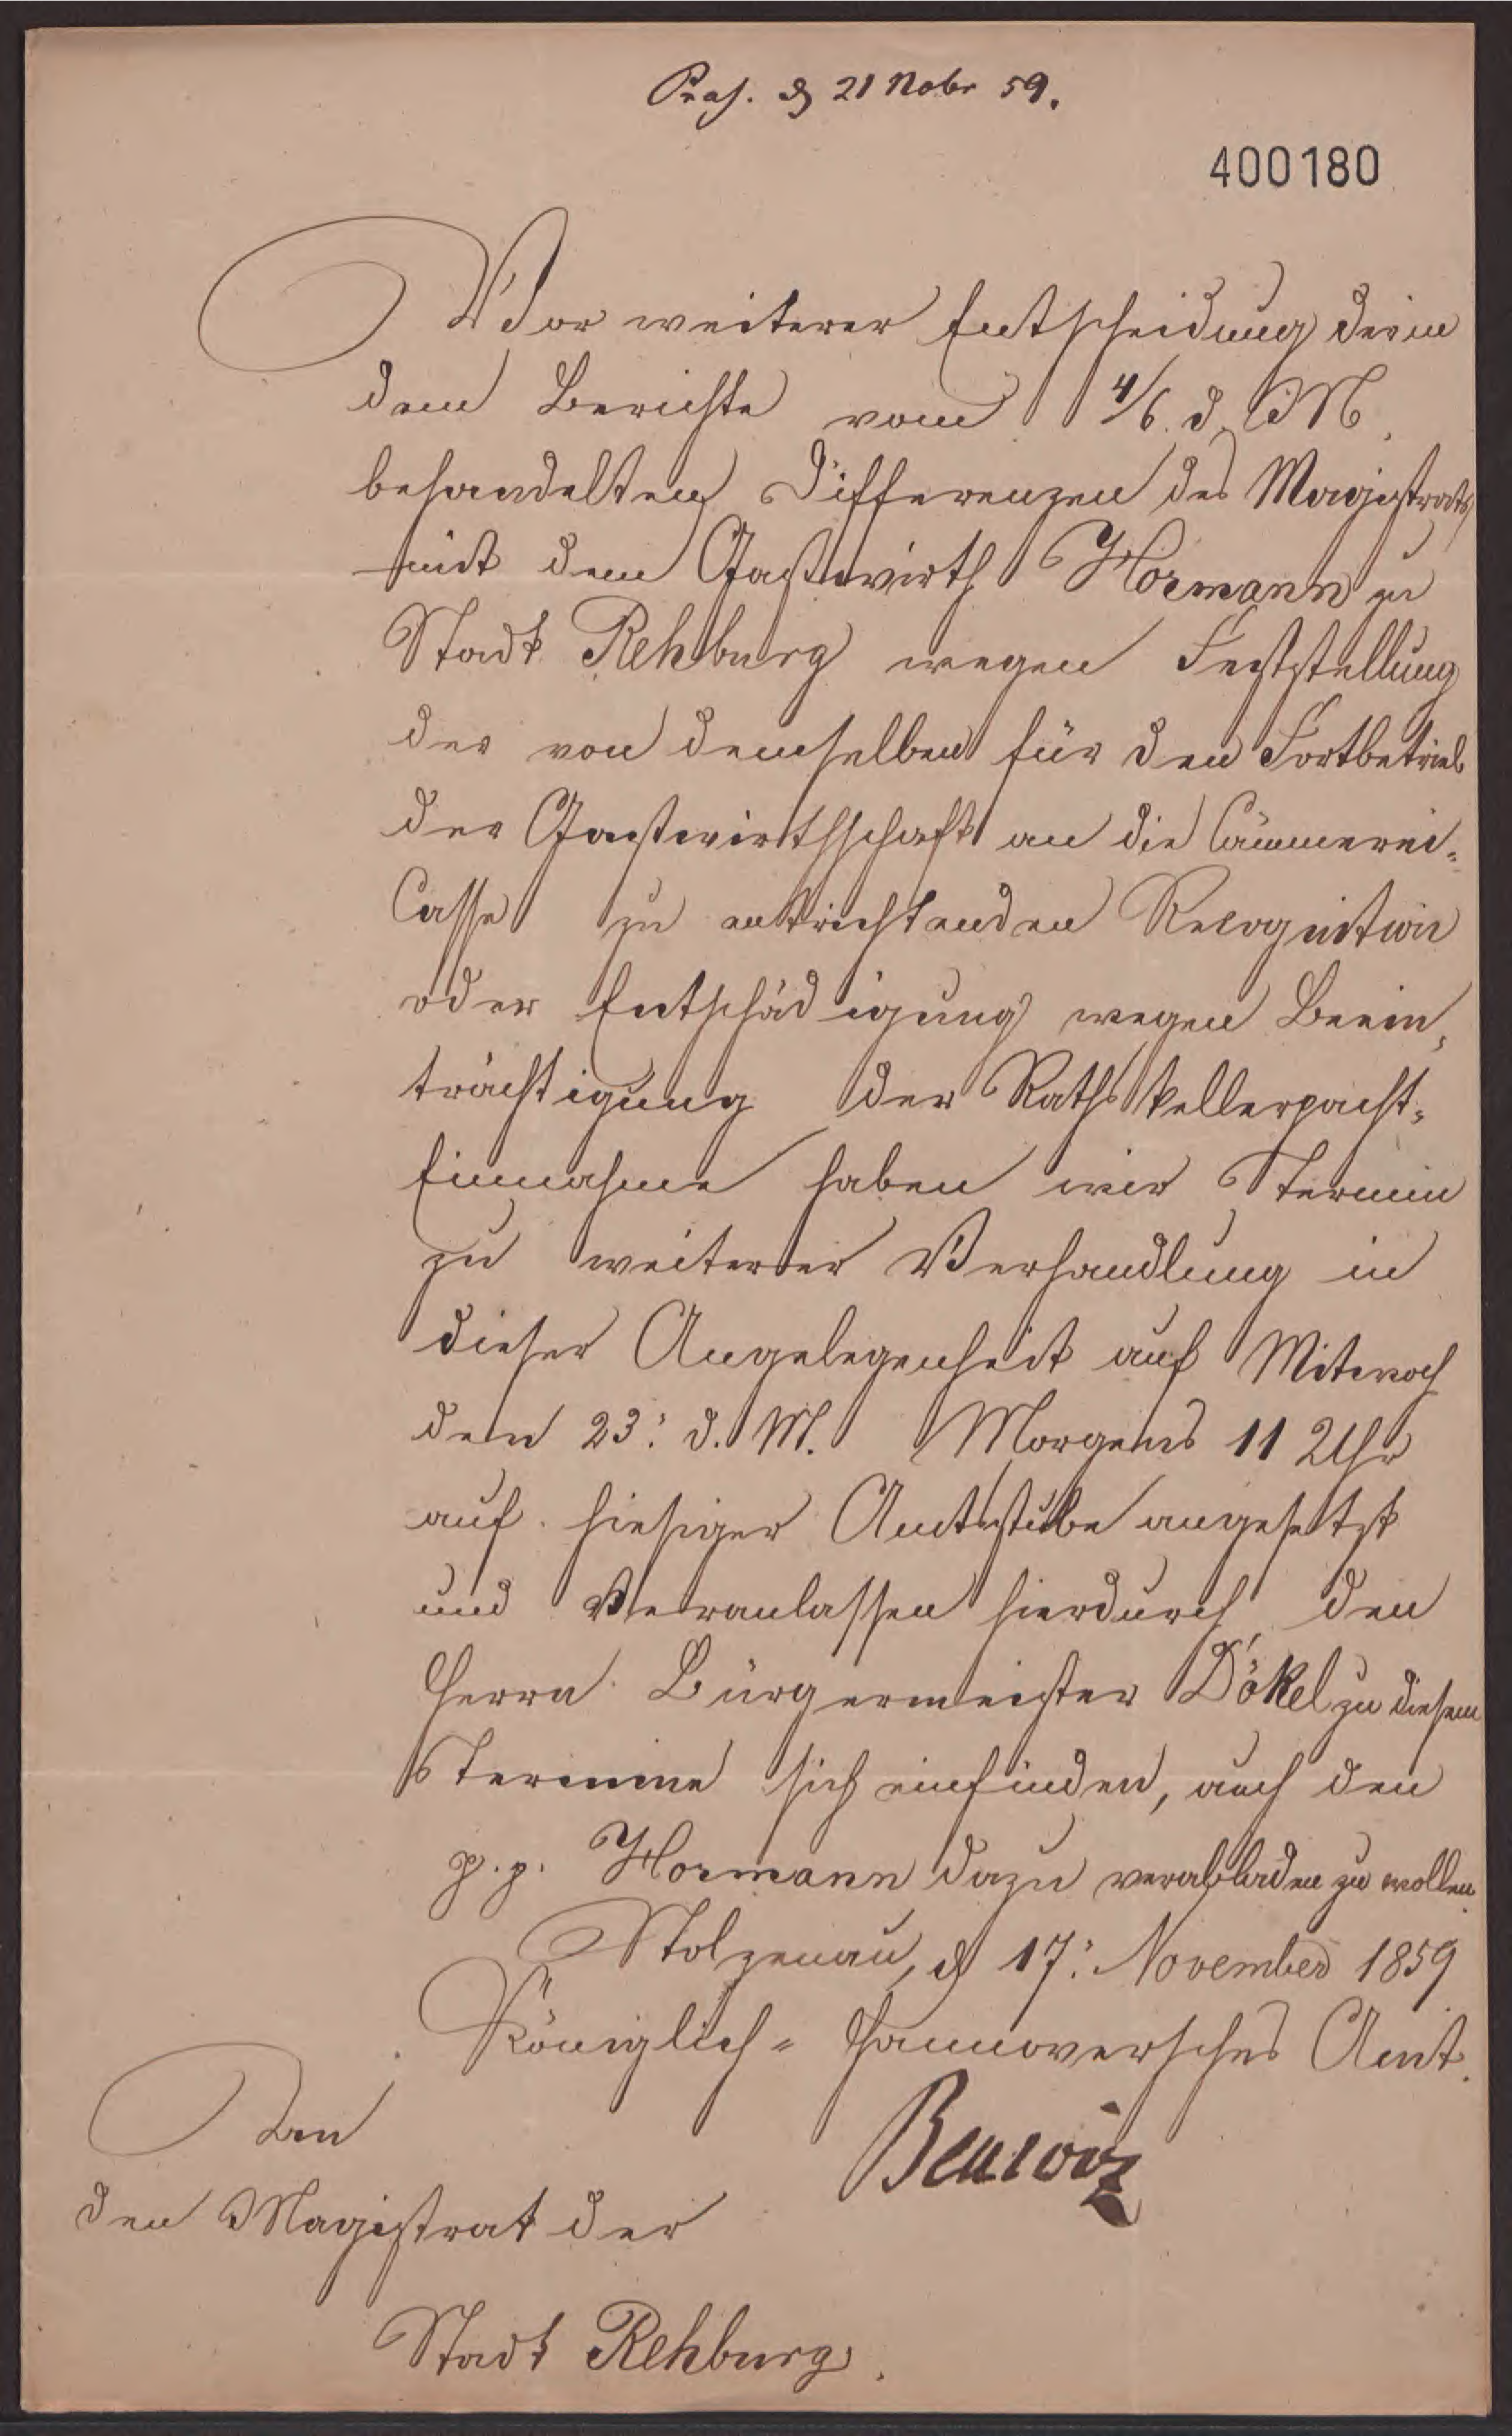 Präs. d 21 Nobr 59.
400180
Vor weiterer Entscheidung der in
dem Berichte vom 4/6. d. M.
behandelten Differenzen des Magistrats
mit dem Gastwirth Hormann zu
Stadt Rehburg wegen Feststellung
der von demselben für den Fortbetrieb
der Gastwirthschaft an die Cämmerei-
Casse zu entrichtenden Recognition
oder Entschädigung wegen Beein-
trächtigung der Rathskellerpacht-
Einnahme haben wir Termin
zu weiterer Verhandlung in
dieser Angelegenheit auf Mitwoch
den 23. d. M. Morgens 11 Uhr
auf hiesiger Amtsstube angesetzt
und veranlassen hierdurch den
Herrn Bürgermeister Dökel zu diesem
Termine sich einfinden, auch den
p. p. Hormann dazu verabladen zu wollen.
Stolzenau, d 17. November 1859
Königlich-Hannoversches Amt.
An
den Magistrat der
Stadt Rehburg.